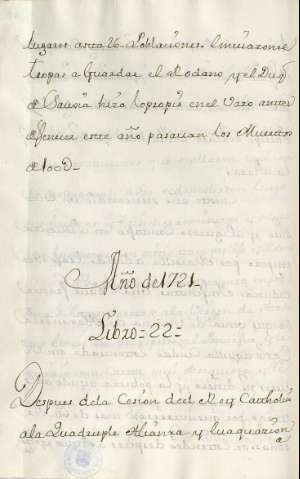 lugares asta 26 Poblaciones. Imviaronse
tropas a Guardar el Rodano y el Duq
de Sauoia hizo lo propio en el Varo antes
de fenecer este año pasauan los Muertos
de 100@_
Año de 1721_
Libro=22=
Despues de la Cesion del Rey Catholico
a la Quadruple Alianza y la